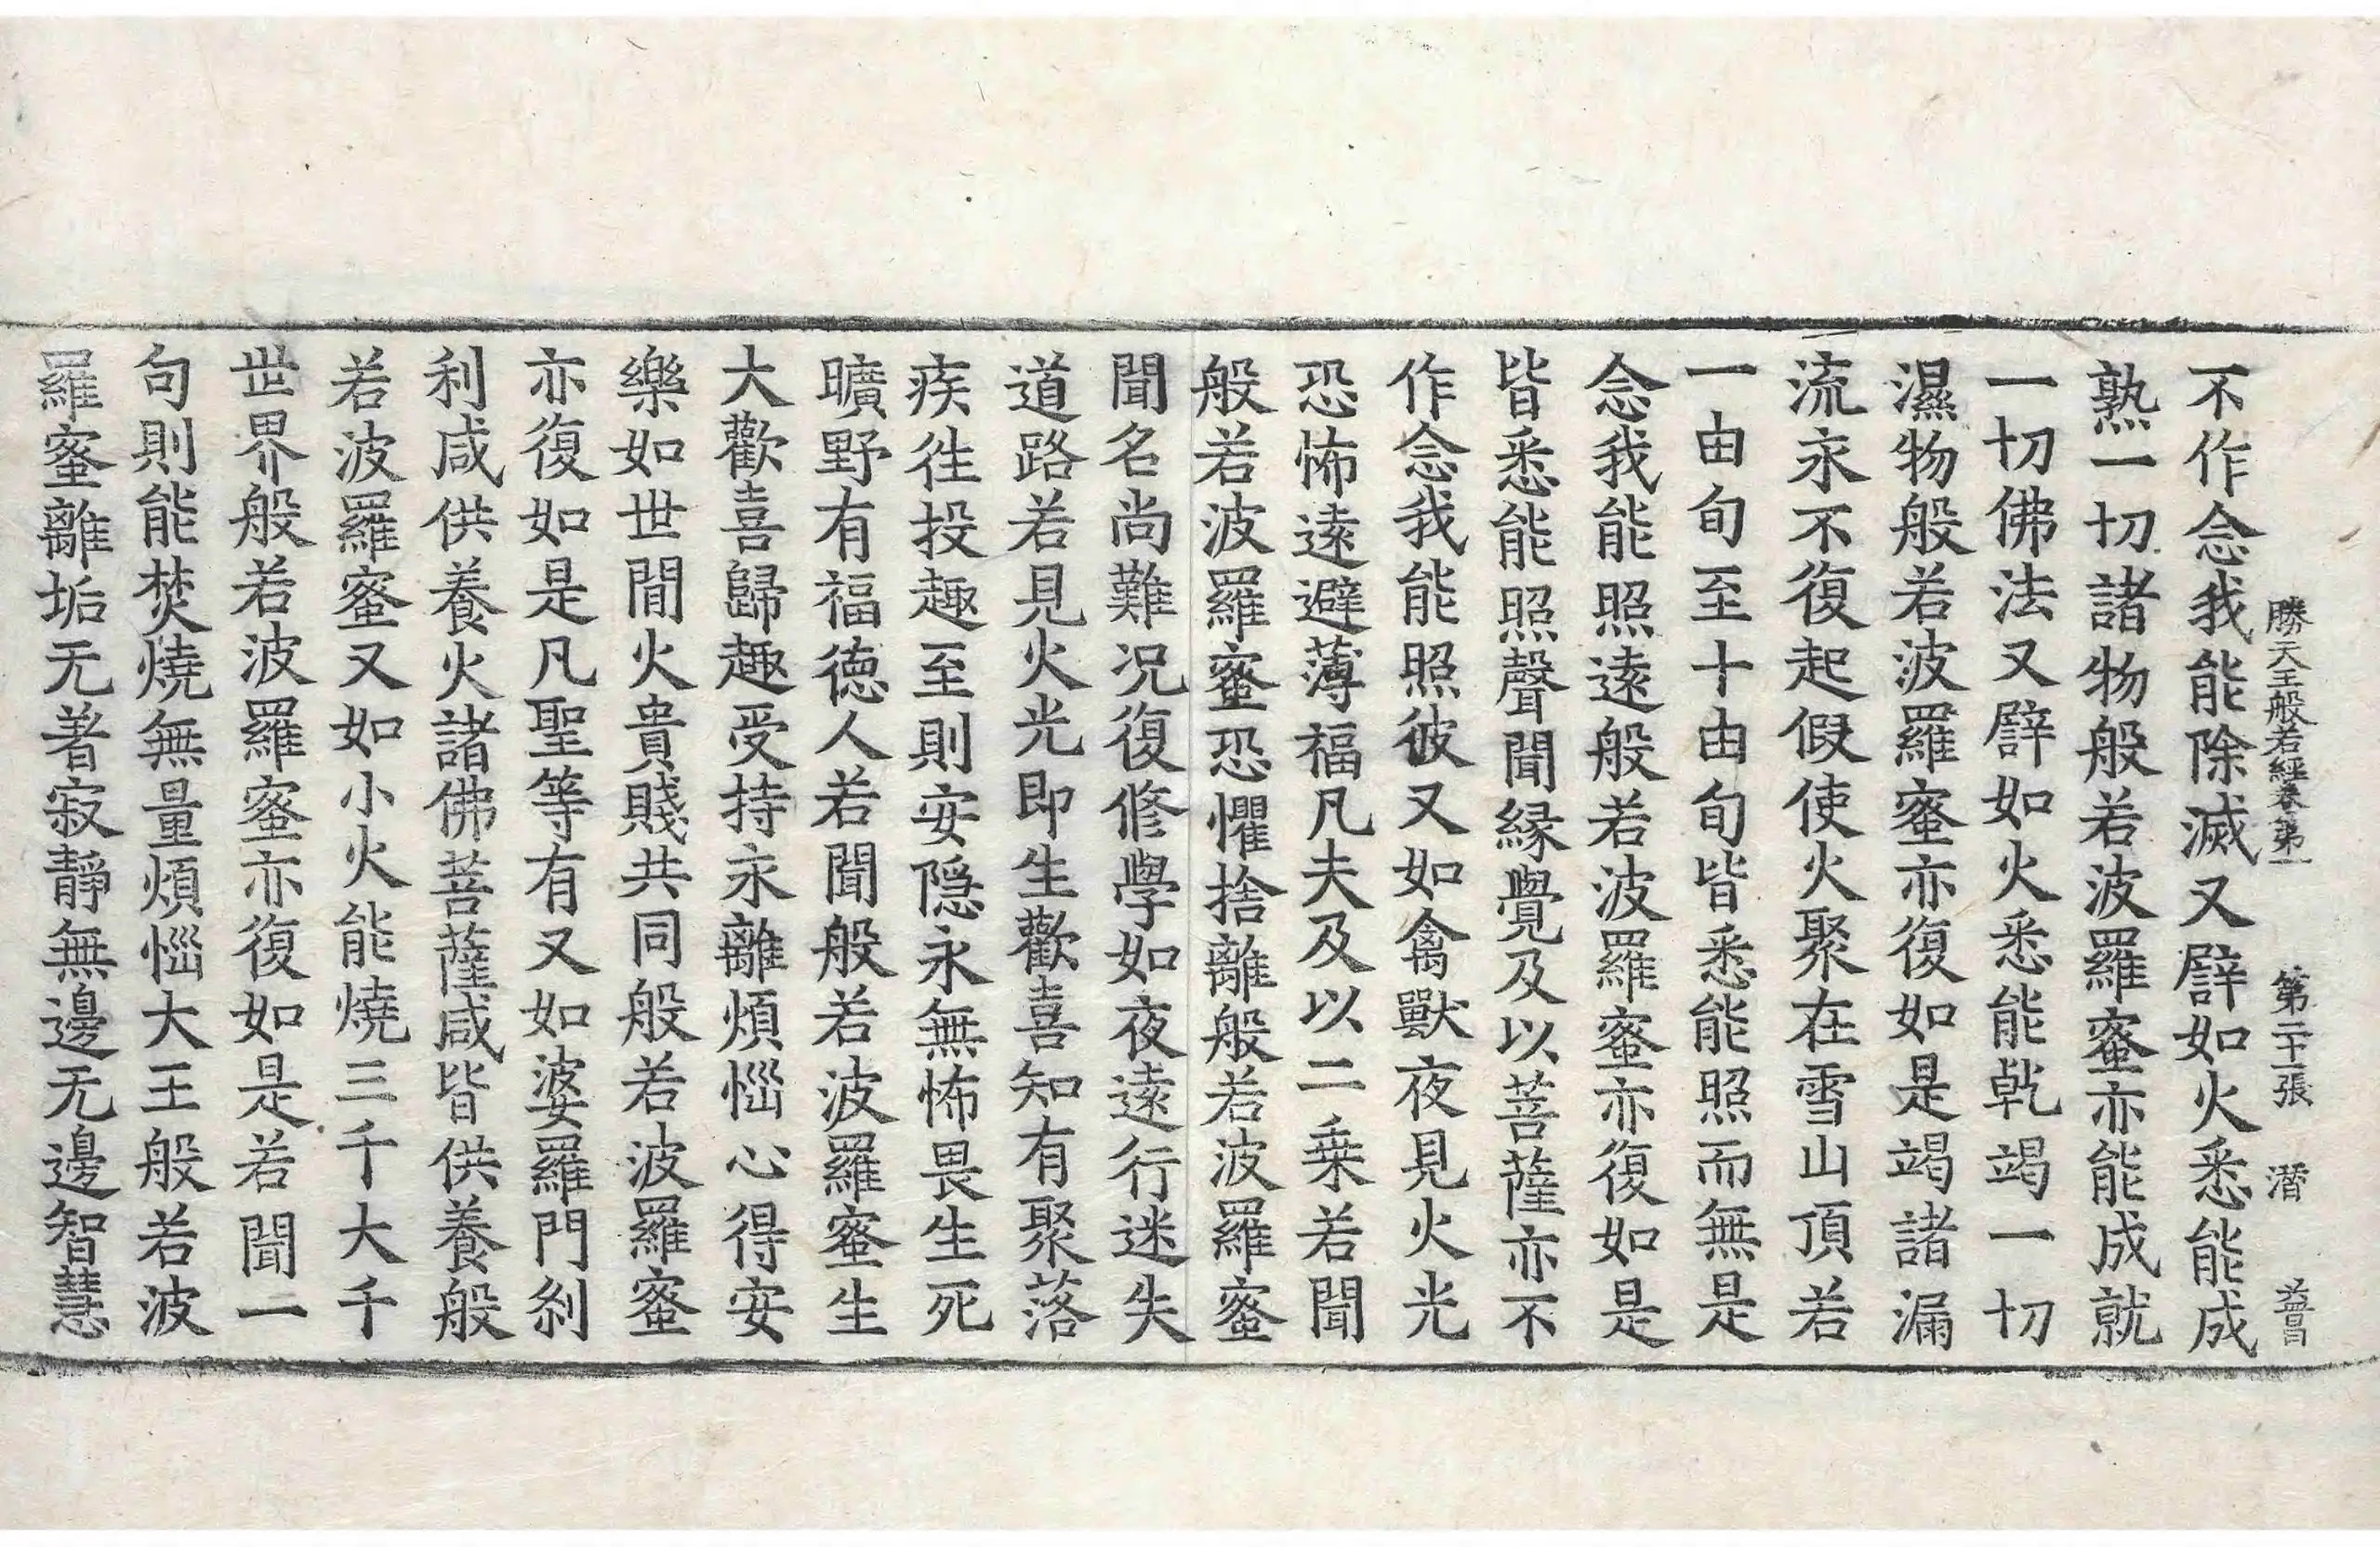 勝天王般若經卷第一 第二十一張 潜
不作念我能除滅又譬如火悉能成
熟一切諸物般若波羅蜜亦能成就
一切佛法又譬如火悉能乹竭一切
濕物般若波羅蜜亦復如是竭諸漏
流永不復起假使火聚在雪山頂若
一由旬至十由旬皆悉能照而無是
念我能照遠般若波羅蜜亦復如是
皆悉能照聲聞緣覺及以菩薩亦不
作念我能照彼又如禽獸夜見火光
恐怖遠避薄福凡夫及以二乗若聞
般若波羅蜜恐懼捨離般若波羅蜜
聞名尚難況復修學如夜遠行迷失
道路若見火光即生歡喜知有聚落
疾徃投趣至則安隱永無怖畏生死
曠野有福徳人若聞般若波羅蜜生
大歡喜歸趣受持永離煩惱心得安
樂如世間火貴賤共同般若波羅蜜
亦復如是凡聖等有又如婆羅門刹
利咸供養火諸佛菩薩咸皆供養般
若波羅蜜又如小火能燒三千大千
世界般若波羅蜜亦復如是若聞一
句則能焚燒無量煩惱大王般若波
羅蜜離垢无著寂靜無邊无邊智慧